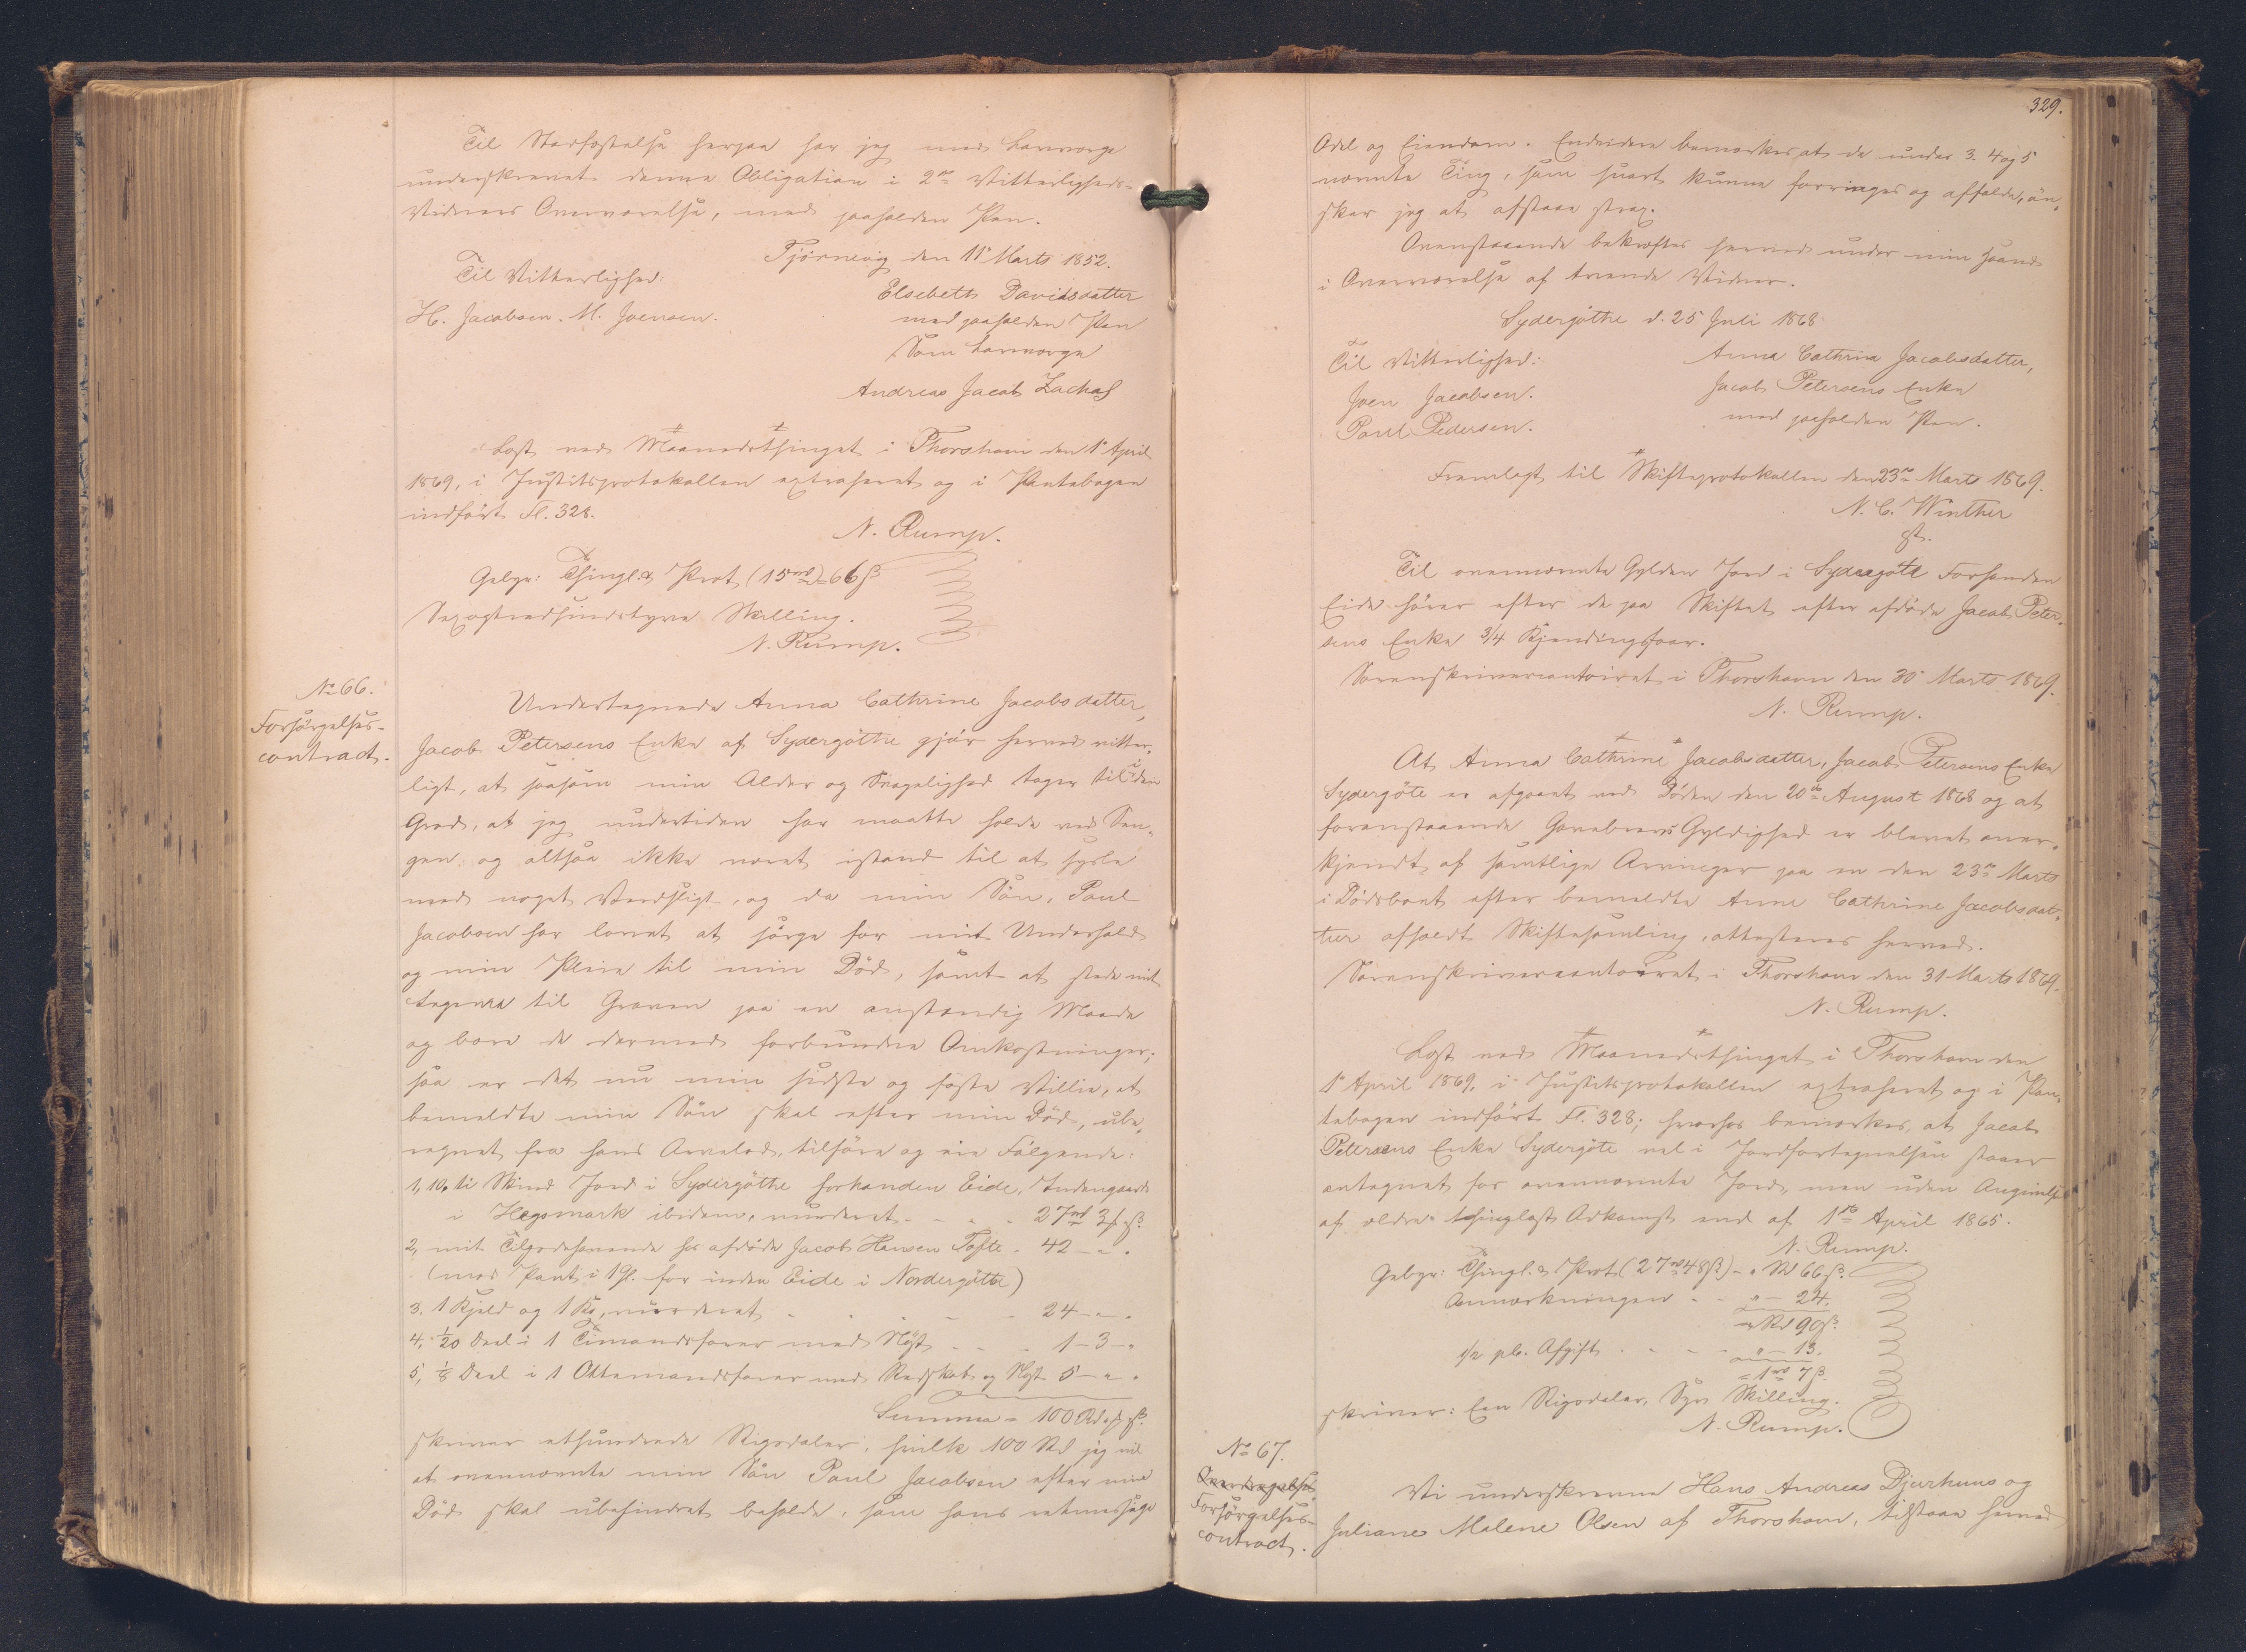 Til Stadfæstelse herpaa har jeg med Laugværge
underskrevet denne Obligation i 2de Vitterligheds-
Vidners Overværelse, med paaholden Pen.
Tjörnevig den 11te Marts 1852.
Til Vitterlighed:
Elsebeth Davidsdatter
H. Jacobsen. M. Joensen.
med paaholden Pen
Som Laugværge
Andreas Jacob Zachas
Læst ved Maanedsthinget i Thorshavn den 1ste April
1869, i Justitsprotokollen extraheret og i Pantebogen
indført Fl. 328.
N. Rump.
Gebyr: Thingl. & Prot (15 rd) = 66 ß
Sexogtredsindstyve Skilling.
N. Rump.
No 66.
Forsørgelses-
contract.
Undertegnede Anna Cathrine Jacobsdatter,
Jacob Petersens Enke af Sydergöthe gjör herved vitter-
ligt, at saasom min Alder og Svagelighed tager til i den
Grad, at jeg undertiden har maatte holde ved Sen-
gen og altsaa ikke været istand til at sysle
med noget Verdsligt, og da min Sön, Poul
Jacobsen har lovet at sörge for mit Underhold
og min Pleie til min Död, samt at stede mit
Legeme til Graven paa en anstændig Maade
og bære de dermed forbundne Omkostninger;
saa er det nu min sidste og faste Villie, at
bemeldte min Sön skal efter min Död, ube-
regnet fra hans Arvelod, tilföre og eie Fölgende:
1, 10 ti Skind Jord i Sydergöthe forhanden Eide, Indengaards
i Hegsmark ibidem, vurderet - - - 27 rd 3 $ ß.
2, mit Tilgodehavende hos afdöde Jacob Hansen Tofte - 42 - " -
(med Pant i 1 Gl. for inden Eide i Nordergötte)
3. 1 Kjeld og 1 Ko, vurderet - - - - 24 - " -
4, 1/20 Deel i 1 Timandsfarer med Nöst - - - 1 - 3 - "
5, 1/8 Deel i 1 Ottemandsfarer med Redskab og Nöst 5 - " -
Summa = 100 Rd " $ " ß.
skriver ethundrede Rigsdaler, hvilke 100 Rd jeg vil
at ovennævnte min Sön Poul Jacobsen efter min
Död skal ubehindret beholde, som hans retmæssige
329.
Odel og Eiendom. Endvidere bemærkes at de under 3. 4 og 5
nævnte Ting, som snart kunne forringes og affalde, ön-
sker jeg at afstaae strax.
Ovenstaaende bekræftes herved under min Haand
i Overværelse af tvende Vidner.
Sydergöthe d. 25 Juli 1868
Til Vitterlighed:
Anna Cathrina Jacobsdatter,
Joen Jacobsen.
Jacob Petersens Enke
Poul Pedersen.
med paaholden Pen.
Fremlagt til Skifteprotokollen den 23de Marts 1869.
N. C. Winther
gst.
Til ovennævnte Gylden Jord i Sydregöte Forhanden
Eide hörer efter de paa Skiftet efter afdöde Jacob Peter-
sens Enke 3/4 Kjendingsfaar.
Sorenskrivercontoiret i Thorshavn den 30 Marts 1869.
N. Rump.
At Anna Cathrine Jacobsdatter, Jacob Petersens Enke
Sydergöte er afgaaet ved Döden den 20de August 1868 og at
foranstaaende Gavebrevs Gyldighed er blevet aner-
kjendt af samtlige Arvinger paa en den 23de Marts
i Dödsboet efter bemeldte Anne Cathrine Jacobsdat-
ter afholdt Skiftesamling, attesteres herved.
Sorenskrivercontoiret i Thorshavn den 31 Marts 1869.
N. Rump.
Læst ved Maanedsthinget i Thorshavn den
1ste April 1869, i Justitsprotokollen extraheret og i Pan-
tebogen indført Fl. 328; hvorhos bemærkes, at Jacob
Petersens Enke Sydergöte vel i Jordfortegnelsen staaer
antegnet for ovennævnte Jord, men uden Angivelse
af ældre thinglæst Adkomst end af 1ste April 1865.
N. Rump.
Gebyr: Thingl. & Prot (27 rd 48 ß) - " Rd 66 ß.
Anmærkningen - - " - 24.
" Rd 90 ß.
1/2 pC. Afgift - - - " - 13.
= 1 rd 7 ß.
skriver: Een Rigsdaler, Syv Skilling.
N. Rump.
No 67.
Overdragelses
Forsørgelses-
contract.
Vi underskrevne Hans Andreas Djurhuus og
Juliane Malene Olsen af Thorshavn, tilstaae herved